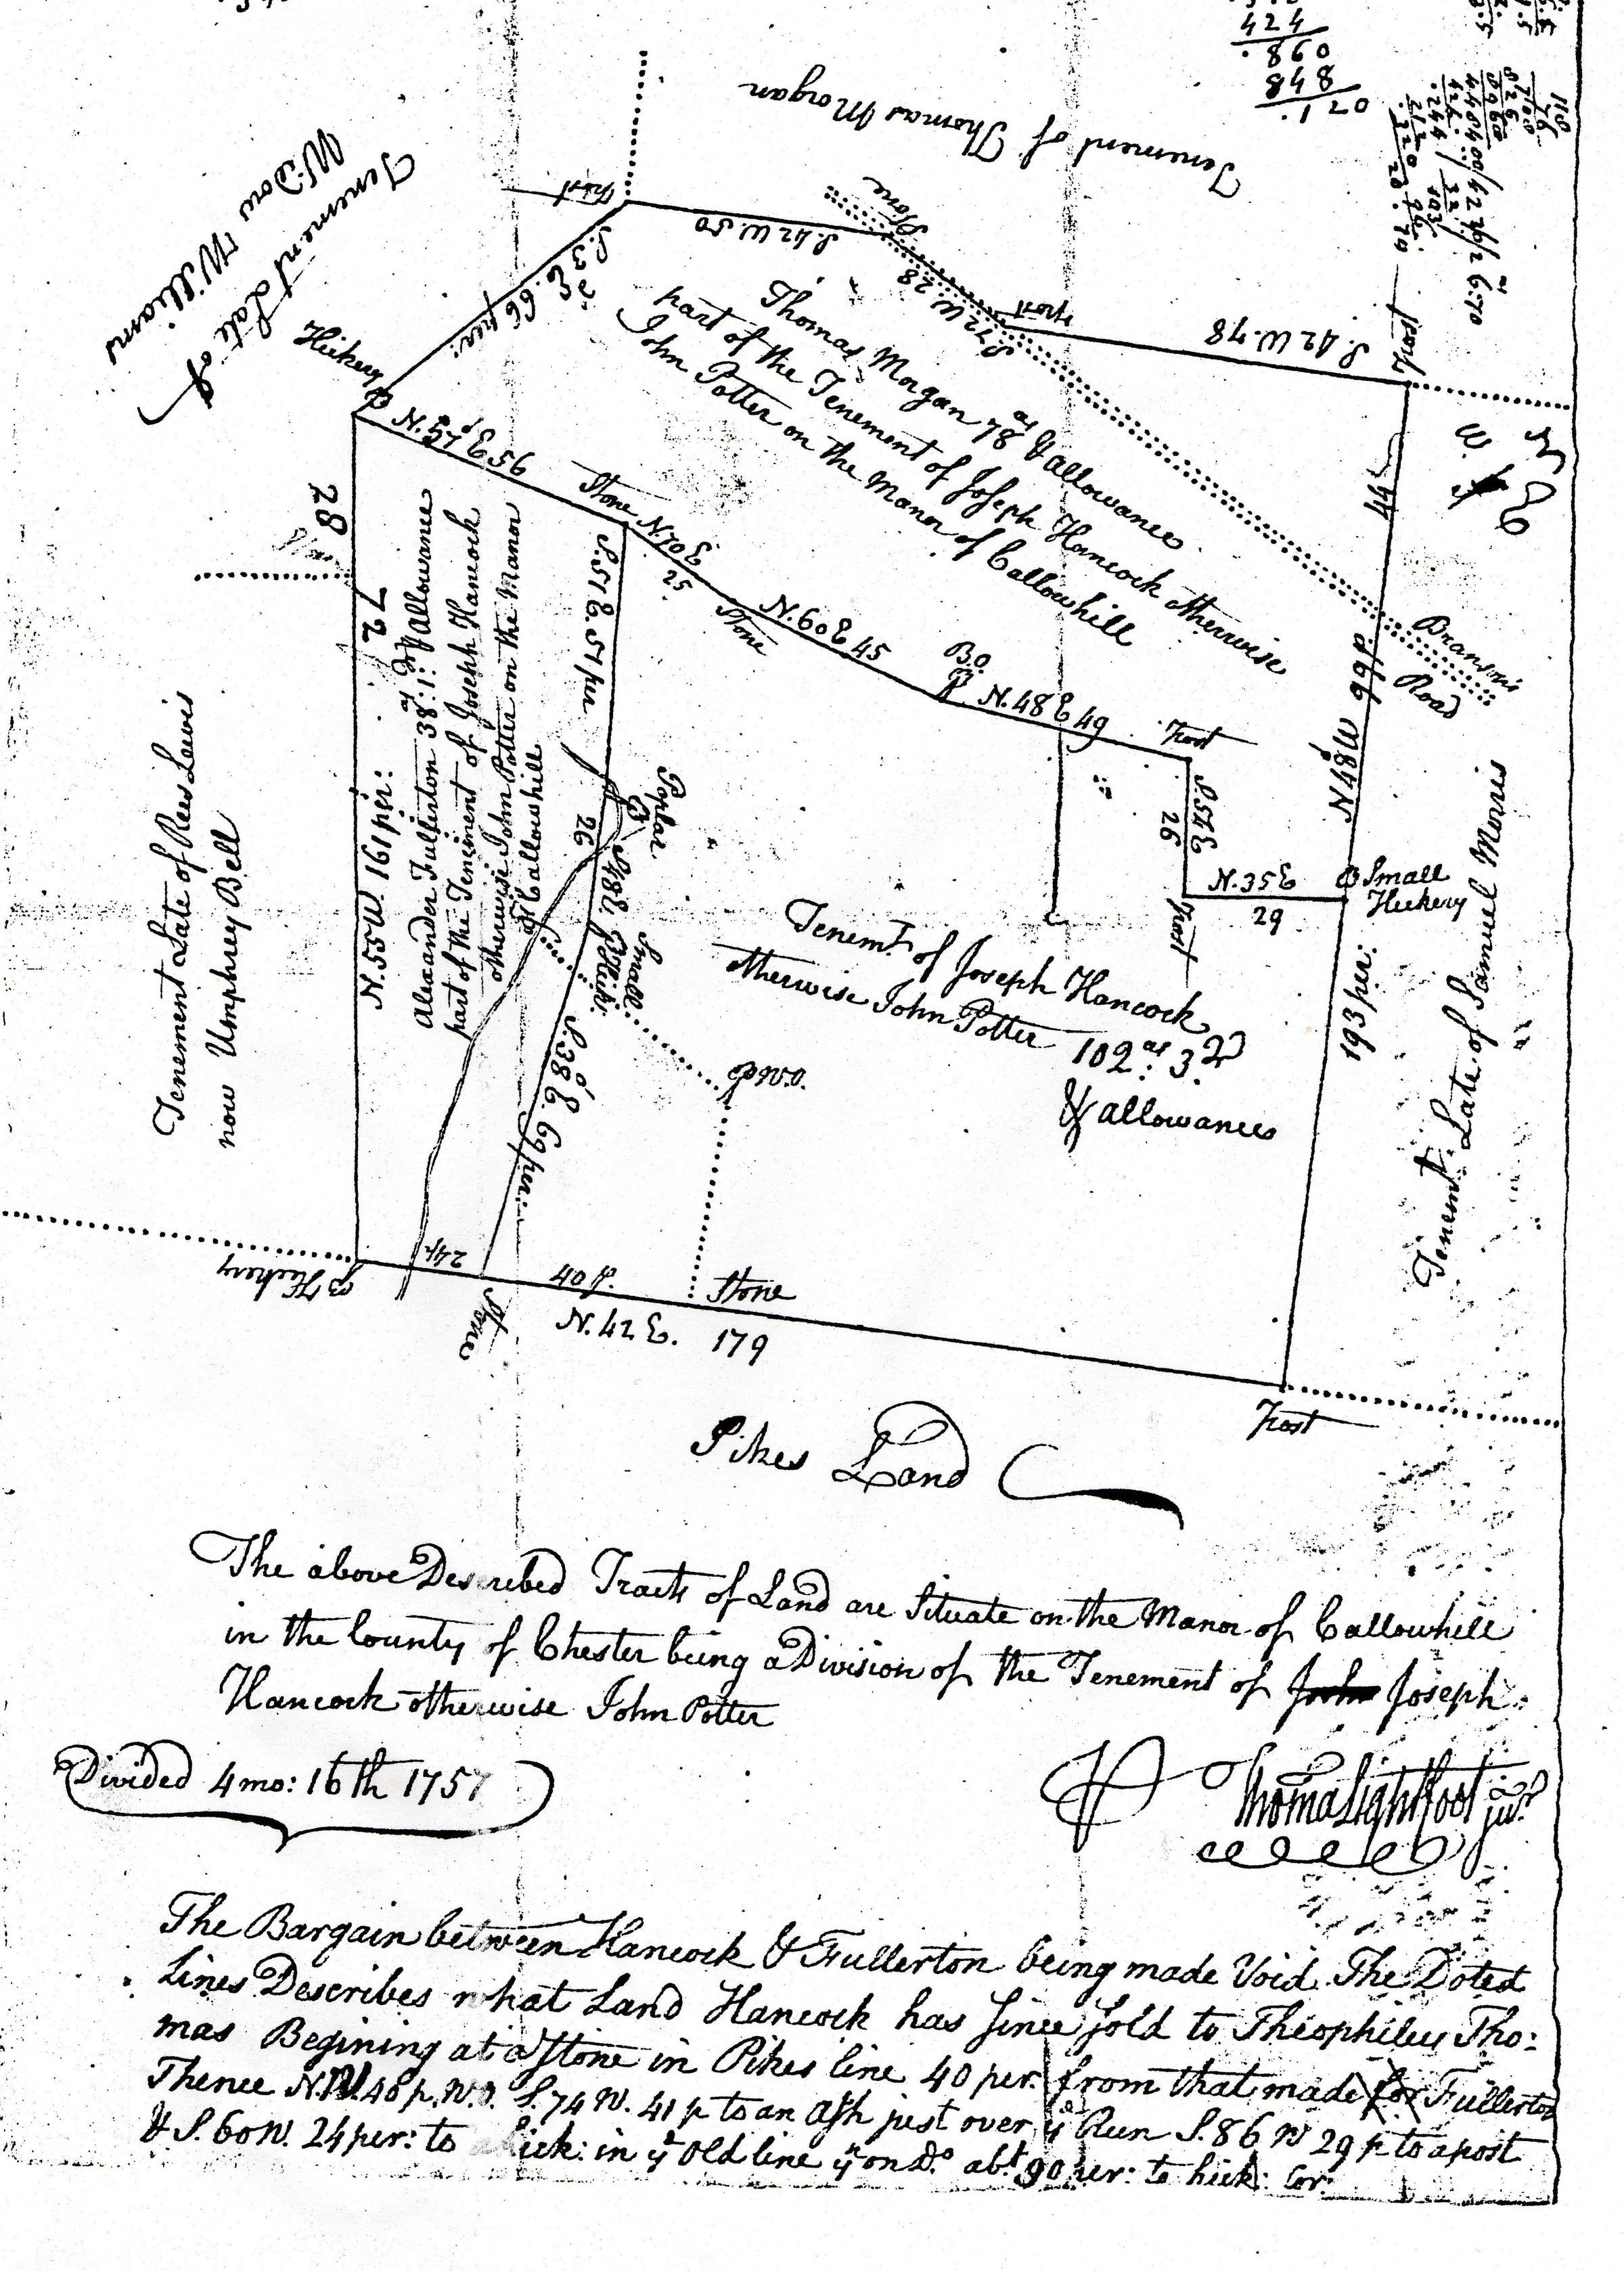 424
098.
848
.1 20
Tenement of Thomas Morgan
Tenement Late of
Widow Williams
Hickery
Post
S. 42 W. 50
Stone
S. 72 W. 28
Post
S. 42 W. 78
Post
S. 3d E. 66 per:
N. 57d E 56
Thomas Morgan 78as & allowance
part of the Tenement of Joseph Hancock otherwise
John Potter on the Manor of Callowhill
28
72
Stone
N. 70 E.
25
Stone
N. 60 E 45
B.O.
N. 48 E 49
Post
S. 54 E
26
Post
N. 35 E
29
Small
Hickery
44
N 48 W d 66 p
Bransons
Road
Tenement Late of Rees Lewis
now Umphrey Bell
N. 55 W. 161 per:
Alexander Fullerton 38as: 1: & Allowance
part of the Tenement of Joseph Hancock
otherwise John Potter on the Manor
of Callowhill
S. 51 E. 51 per
Poplar
26
S 48 E
Small
S. 38d E. 69 per:
W.O.
Tenemt. of Joseph Hancock
otherwise John Potter 102as: 3
& allowances
193 per:
Tenemt. Late of Samuel Morris
Hickery
24 p
Stone
40 p.
Stone
N. 42 E. 179
Post
Pikes Land
The above Described Tracts of Land are Situate on the Manor of Callowhill
in the County of Chester being a Division of the Tenement of John Joseph
Hancock otherwise John Potter
Divided 4 mo: 16th 1757
Thomas Lightfoot junr
The Bargain between Hancock & Fullerton being made Void The Doted
Lines Describes what Land Hancock has Since sold to Theophilus Tho:
mas Begining at a Stone in Pikes line 40 per. from that made for Fullerton
Thence N. W. 48 p. W.O. S. 74 W. 41 p to an Ash just over ye Run S. 86 W 29 p to a post
& S. 60 W. 24 per: to hick: in ye old line yn on Do. abt. 90 per: to hick: Cor: